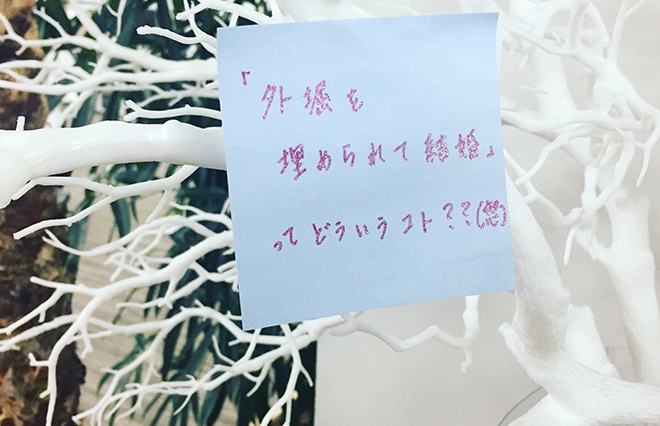 「外堀を
埋められて結婚」
ってどういうコト??(怒)